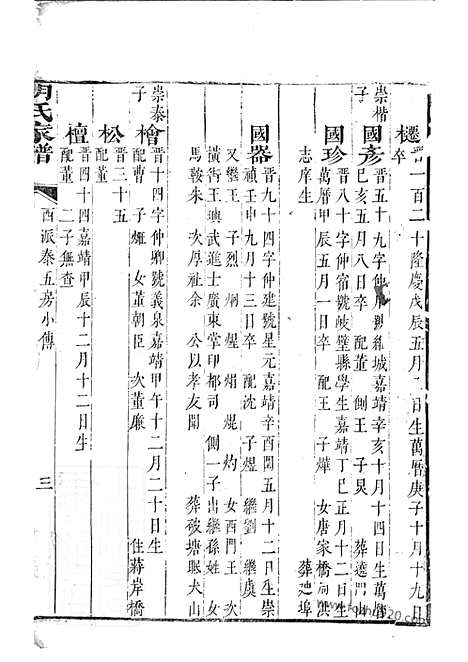 櫏 晋一百二十隆慶戊辰五月二日生萬曆庚子十月十九日
卒
崇楷子 國彥 晋五十九字仲 號維城嘉靖辛亥十月十四日生萬曆
己亥五月八日卒 配董 側王 子炅 葬蘧 山
國珍 晋八十字仲宿號岐璧縣學生嘉靖丁巳正月十二日生
萬曆甲辰五月一日卒 配王 子燁 女唐家橋 洪
志庠生 葬 埠
國器 晋九十四字仲建號星元嘉靖辛酉閏五月十二日生崇
禎壬申九月十三日卒 配沈 子煜 繼劉 繼虞
又繼王 子烈 炯 煋 焆 焜 灼 女西門王 次
橫街王 璵武進士廣東掌印都司 側一子出繼孫姓 女
馬鞍朱 次厚社余 公以孝友聞 葬破塘眠犬山
崇泰子 檜 晋四十四字仲卿號義泉嘉靖甲午十二月二十日生
配曹 子 女董朝臣 次董廉 住蔣岸橋
松 晋三十五
配董
檀 晋四十四嘉靖甲辰十二月十二日生
配董 二子無查
氏家譜 西派泰五房小傳 三